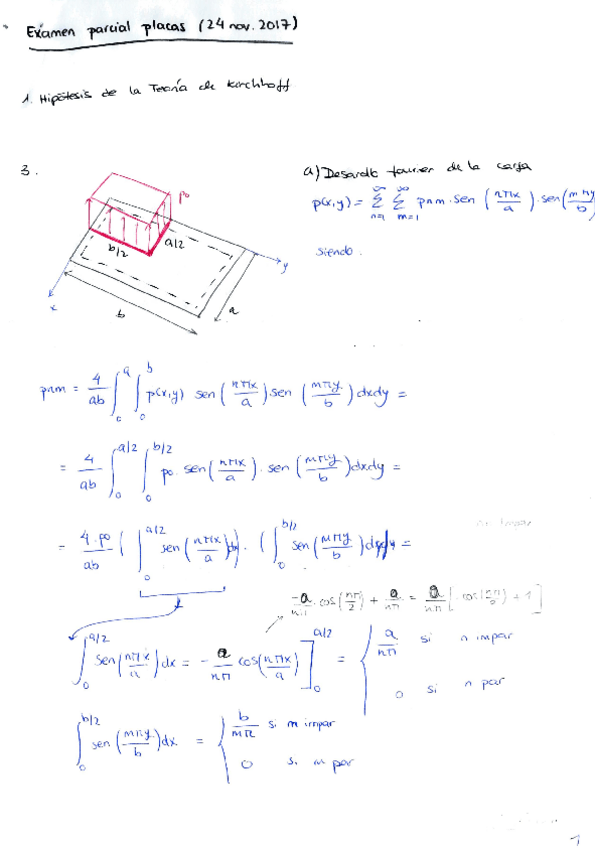 Examen parcial placas (24 nov. 2017)
1. Hipótesis de la Teoría de Kirchhoff
3.
a) Desarollo fourier de la carga
p(x,y) = ∞∑n=1 ∞∑m=1 pnm · sen (nπx/a) · sen (mπy/b)
siendo.
po
a/2
b/2
y
x
b
a
pnm = 4/ab ∫₀ᵃ ∫₀ᵇ p(x,y) sen (nπx/a) · sen (mπy/b) dxdy =
= 4/ab ∫₀^(a/2) ∫₀^(b/2) po · sen (nπx/a) · sen (mπy/b) dxdy =
= 4·po/ab ( ∫₀^(a/2) sen (nπx/a) dx) · ( ∫₀^(b/2) sen (mπy/b) dy =
n impar
-a/nπ · cos (nπ/2) + a/nπ = a/nπ [-cos(nπ/2) + 1]
∫₀^(a/2) sen (nπx/a) dx = - a/nπ cos (nπx/a) ]₀^(a/2) = { a/nπ si n impar
0 si n par
∫₀^(b/2) sen (mπy/b) dx = { b/mπ si m impar
0 si m par
1